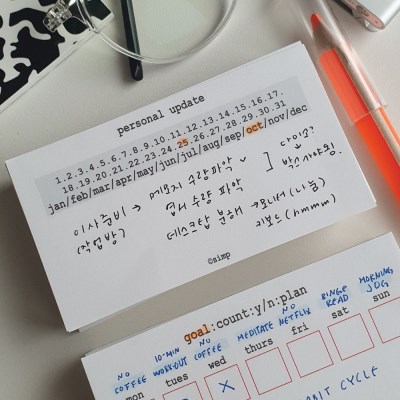 personal update
1.2.3.4.5.6.7.8.9.10.11.12.13.14.15.16.17.
18.19.20.21.22.23.24.25.26.27.28.29.30.31
jan/feb/mar/apr/may/jun/jul/aug/sep/oct/nov/dec
이사준비 → 메모지 수량파악 ✓ ] 다이소?
(작업방) 엽서 수량 파악 박스사야됨.
데스크탑 분해 → 모니터 (나눔)
키보드 (hmmm)
©simp
goal:count:y/n:plan
NO COFFEE
10-MIN WORKOUT
NO COFFEE
MEDITATE
NO NETFLIX
BINGE READ
MORNING JOG
mon tues wed thurs fri sat sun
X
CYCLE